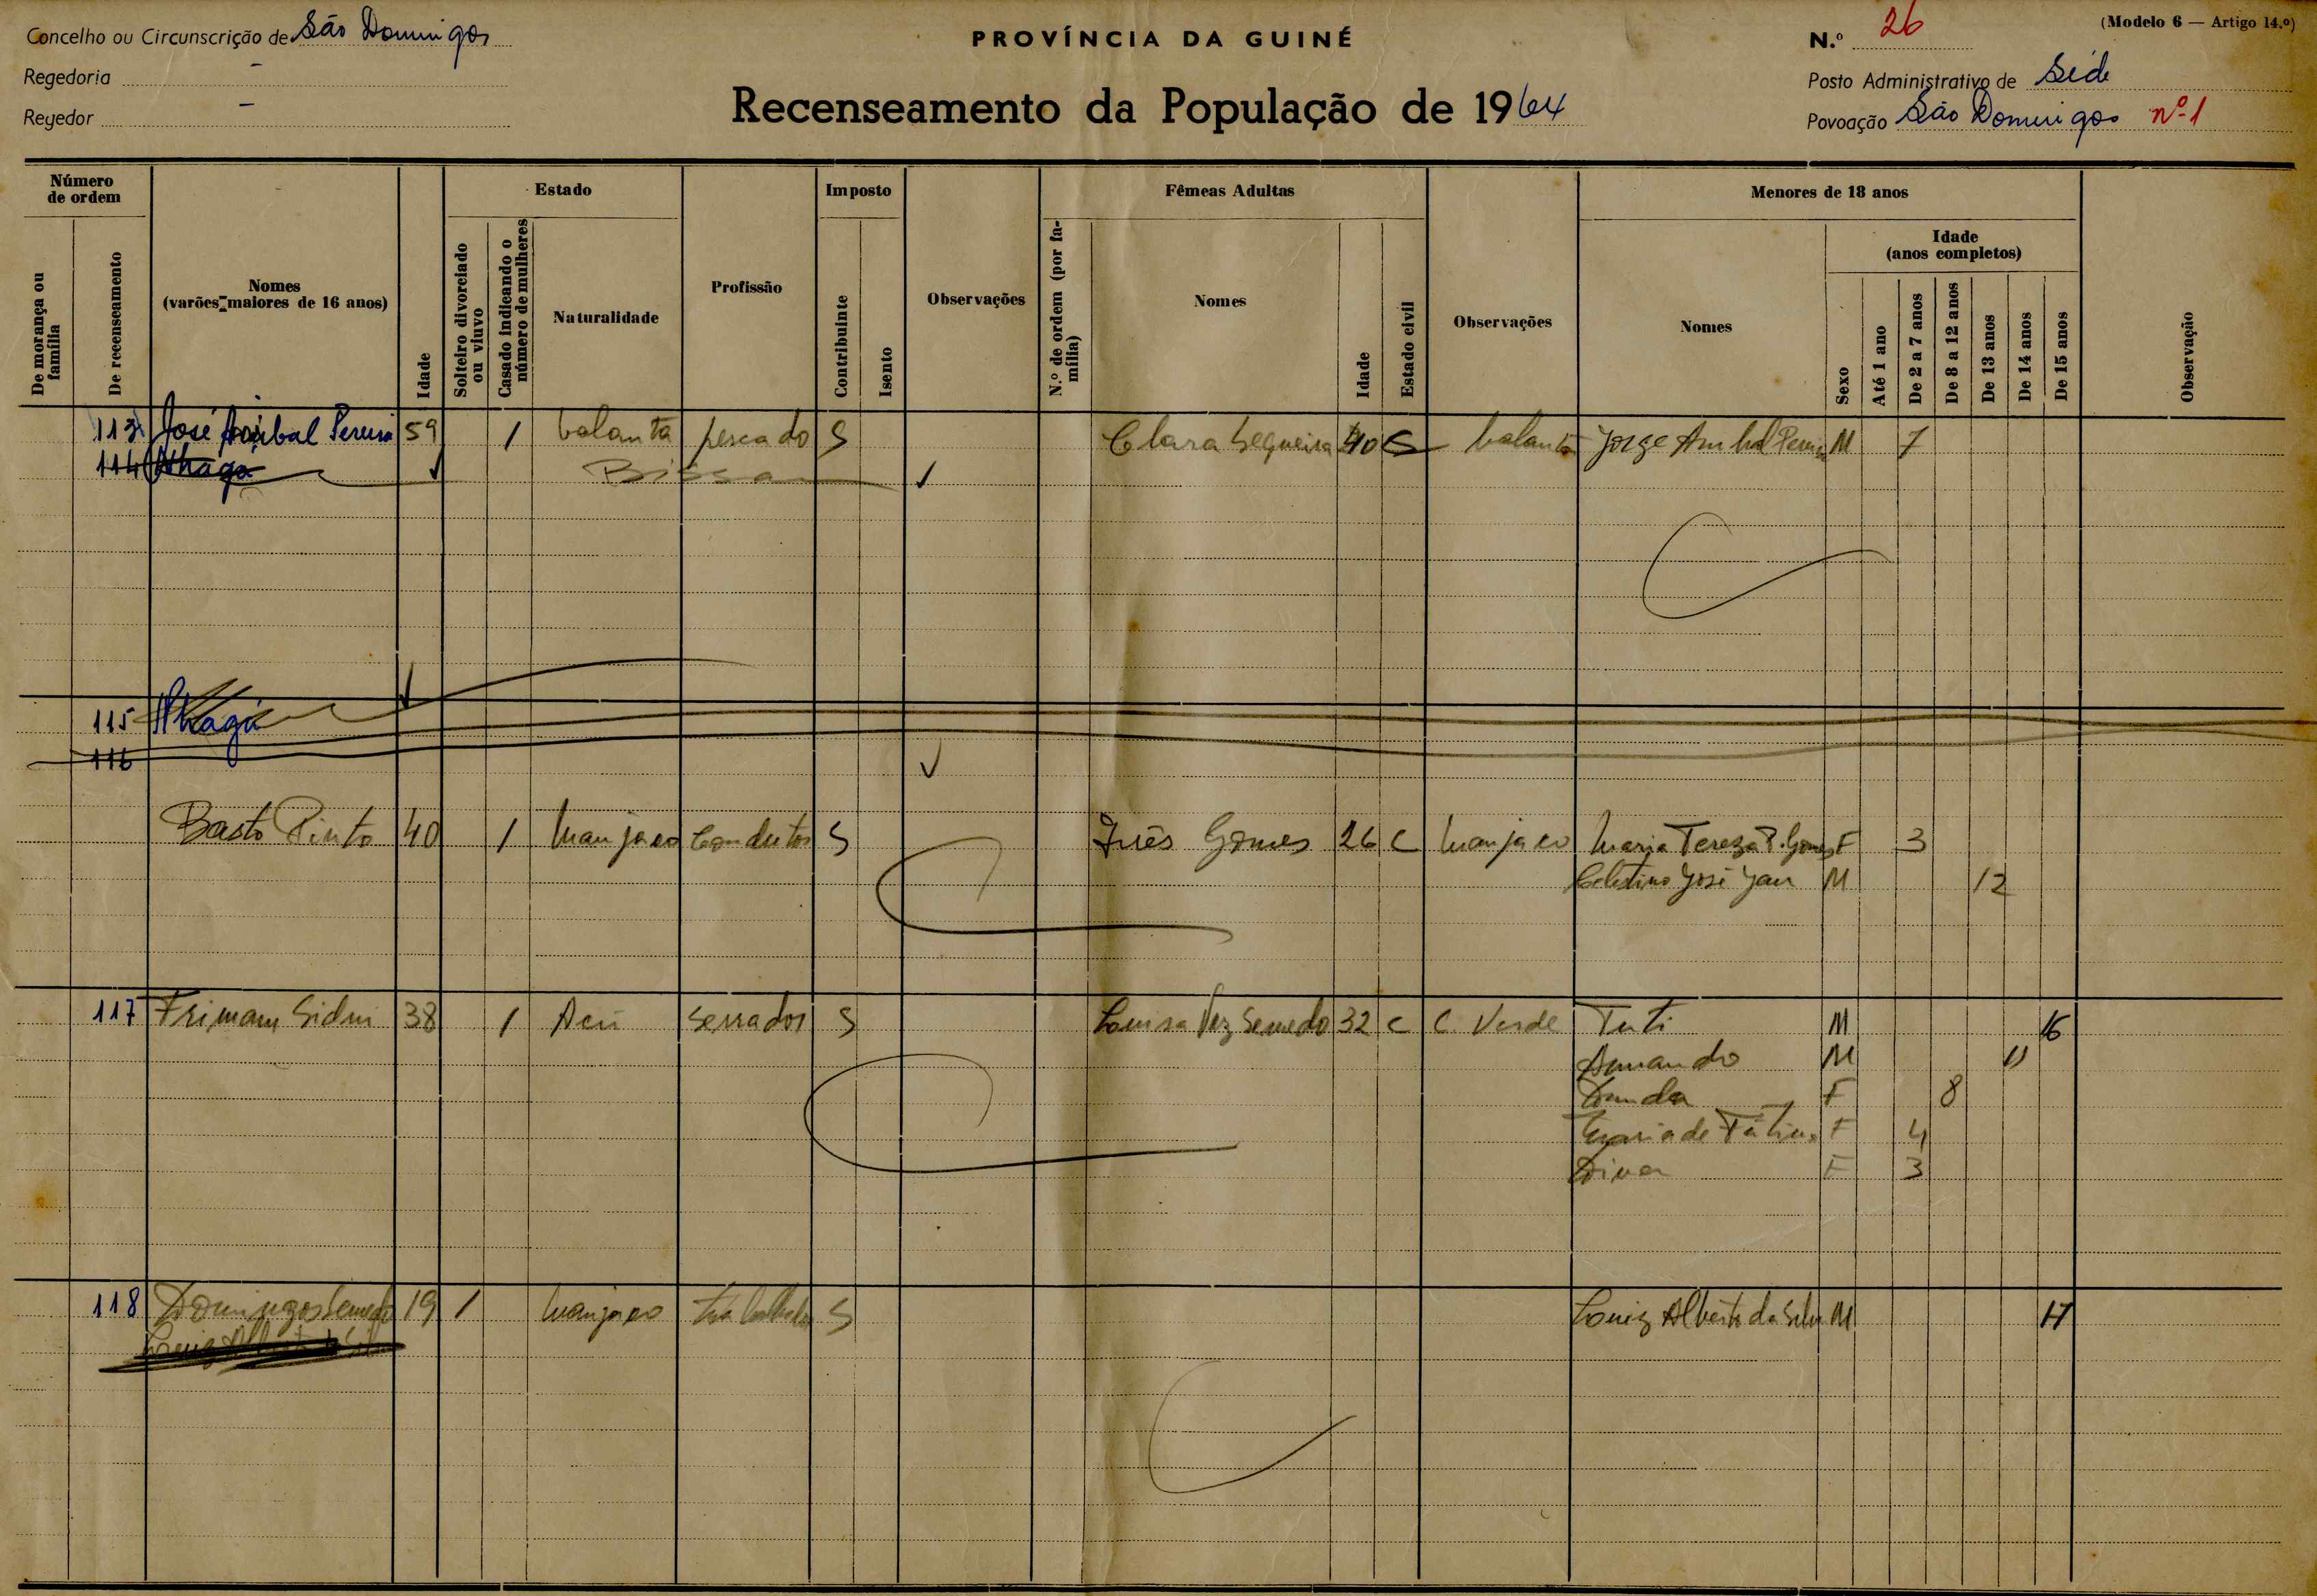 Concelho ou Circunscrição de São Domingos
PROVÍNCIA DA GUINÉ
N.º 26
(Modelo 6 — Artigo 14.º)
Regedoria -
Posto Administrativo de Séde
Regedor -
Recenseamento da População de 1964
Povoação São Domingos nº 1
Número de ordem
Estado
Imposto
Fêmeas Adultas
Menores de 18 anos
De morança ou família
De recenseamento
Nomes (varões maiores de 16 anos)
Idade
Solteiro divorciado ou viuvo
Casado indicando o número de mulheres
Naturalidade
Profissão
Contribuinte
Isento
Observações
N.º de ordem (por família)
Nomes
Idade
Estado civil
Observações
Nomes
Sexo
Idade (anos completos)
Até 1 ano
De 2 a 7 anos
De 8 a 12 anos
De 13 anos
De 14 anos
De 15 anos
Observação
113 José Anibal Pereira 59 1 balanta pescado S Clara Sequeira 40 balanta Jorge M 7
114 Bissau
115
116
Basto Pinto 40 1 Manjaco Condutor S Inês Gomes 26 C Manjaco Maria Tereza P. Gomes F 3
Celestino José M 12
117 38 1 Serrador S Vaz Semedo 32 C C Verde Tuti M 16
Armando M 11
F 8
Maria de Fátima F 4
Dina F 3
118 Domingos Semedo 19 1 Manjaco trabalhador S Louiz Alberto da Silva M 17
Louiz Alberto da Silva